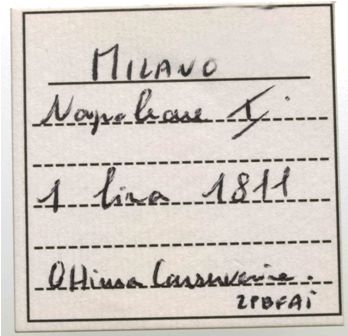 MILANO
Napoleone I.
1 lira 1811
Ottima Conservazione.